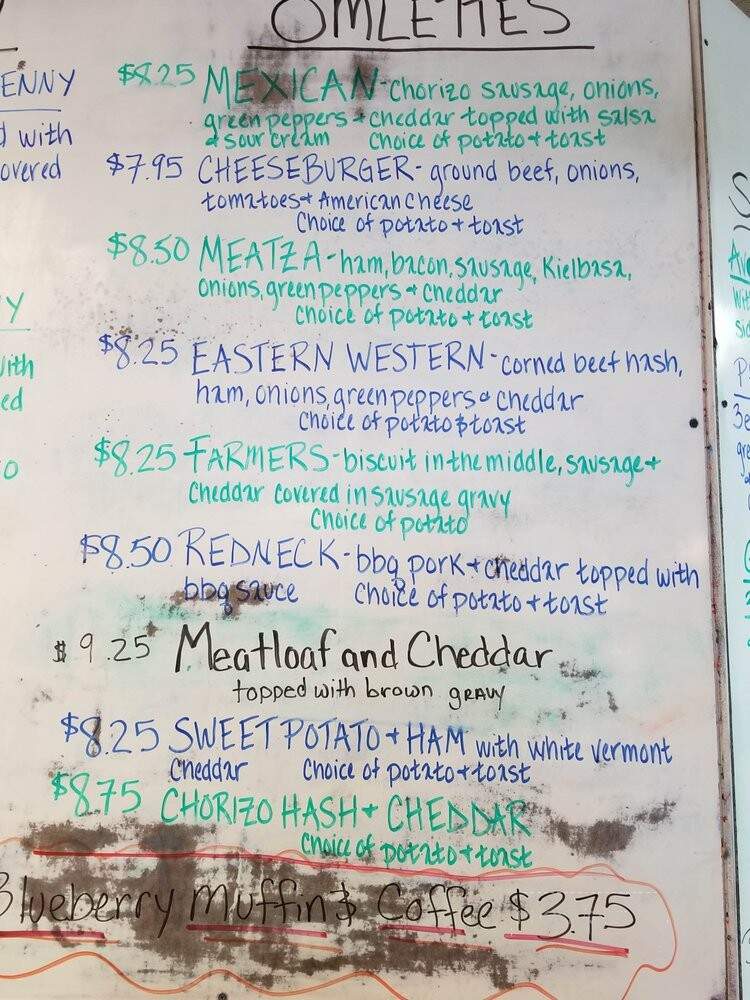 OMLETTES
ENNY
with
overed
Y
with
ed
$8.25 MEXICAN - Chorizo sausage, onions,
green peppers + cheddar topped with salsa
& sour cream Choice of potato + toast
$7.95 CHEESEBURGER - ground beef, onions,
tomatoes + American Cheese
Choice of potato + toast
$8.50 MEATZA - ham, bacon, sausage, Kielbasa,
onions, green peppers + Cheddar
Choice of potato + toast
$8.25 EASTERN WESTERN - corned beef hash,
ham, onions, green peppers & cheddar
Choice of potato & toast
$8.25 FARMERS - biscuit in the middle, sausage +
Cheddar covered in sausage gravy
Choice of potato
$8.50 REDNECK - bbq pork + cheddar topped with
bbq sauce Choice of potato + toast
$9.25 Meatloaf and Cheddar
topped with brown gravy
$8.25 SWEET POTATO + HAM with white vermont
Cheddar Choice of potato + toast
$8.75 CHORIZO HASH + CHEDDAR
Choice of potato + toast
Blueberry Muffin & Coffee $3.75